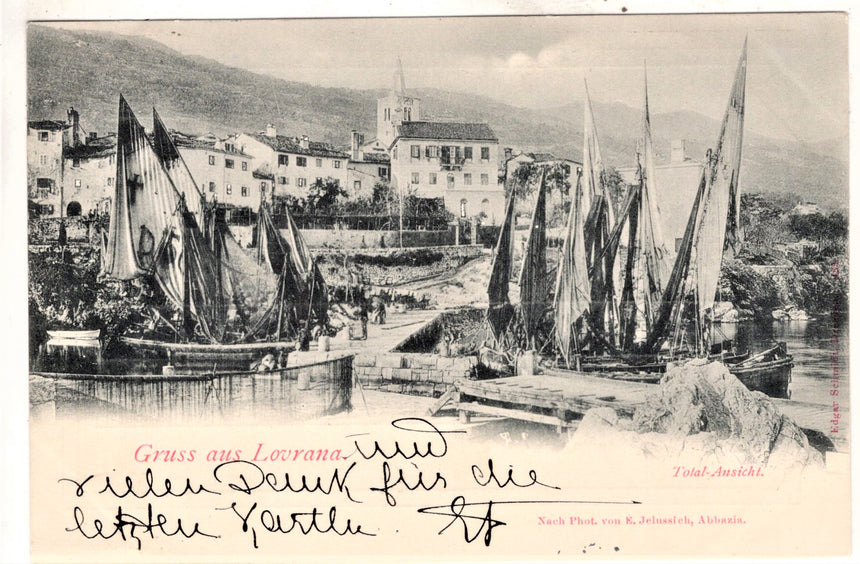 Gruss aus Lovrana. und
vielen Dank für die
letzten Karten.
Total-Ansicht.
Nach Phot. von E. Jelussich, Abbazia.
Edgar Schmidt,